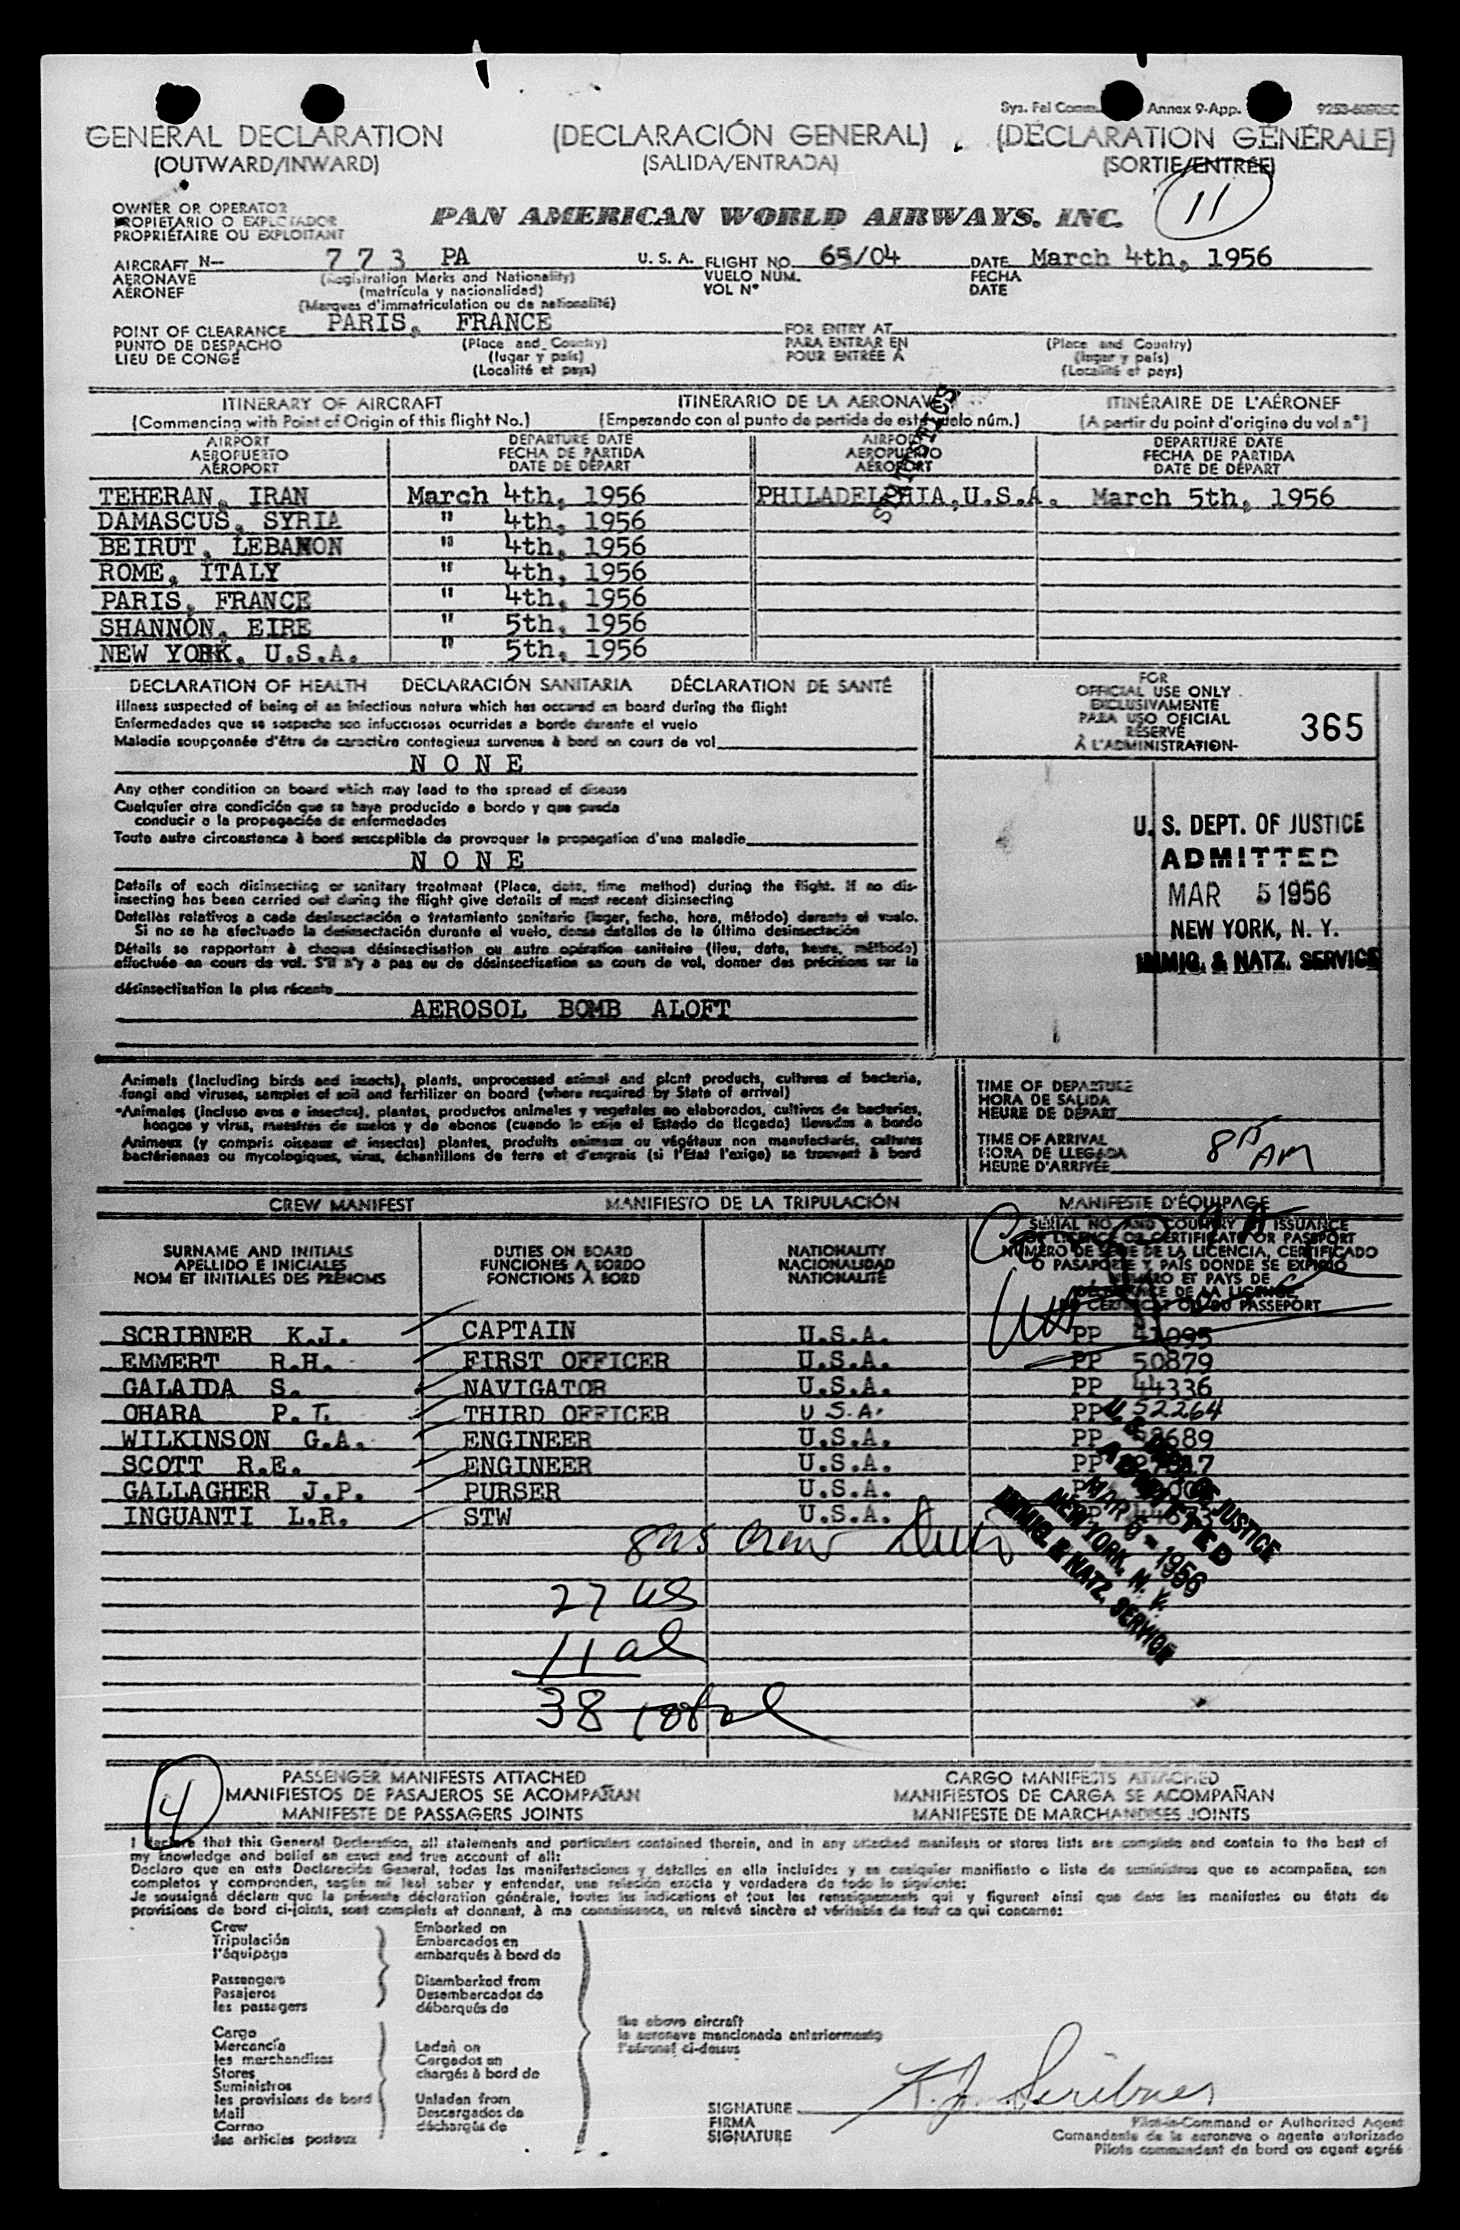 Annex 9-App.
GENERAL DECLARATION (DECLARACIÓN GENERAL) (DÉCLARATION GÉNÉRALE)
(OUTWARD/INWARD) (SALIDA/ENTRADA) (SORTIE/ENTRÉE)
11
OWNER OR OPERATOR
PROPIETARIO O EXPLOTADOR
PROPRIÉTAIRE OU EXPLOITANT
PAN AMERICAN WORLD AIRWAYS, INC.
AIRCRAFT N- 7 7 3 PA U. S. A. FLIGHT NO. 65/04 DATE March 4th, 1956
AERONAVE (Registration Marks and Nationality) VUELO NUM. FECHA
AÉRONEF (matrícula y nacionalidad) VOL N° DATE
(Marques d'immatriculation ou de nationalité)
POINT OF CLEARANCE PARIS, FRANCE FOR ENTRY AT
PUNTO DE DESPACHO (Place and Country) PARA ENTRAR EN (Place and Country)
LIEU DE CONGÉ (lugar y país) POUR ENTRÉE À (lugar y país)
(Localité et pays) (Localité et pays)
STATISTICS
ITINERARY OF AIRCRAFT ITINERARIO DE LA AERONAVE ITINÉRAIRE DE L'AÉRONEF
(Commencing with Point of Origin of this flight No.) (Empezando con el punto de partida de este vuelo núm.) (A partir du point d'origine du vol n°)
AIRPORT DEPARTURE DATE AIRPORT DEPARTURE DATE
AEROPUERTO FECHA DE PARTIDA AEROPUERTO FECHA DE PARTIDA
AÉROPORT DATE DE DÉPART AÉROPORT DATE DE DÉPART
TEHERAN, IRAN March 4th, 1956 PHILADELPHIA, U.S.A. March 5th, 1956
DAMASCUS, SYRIA " 4th, 1956
BEIRUT, LEBANON " 4th, 1956
ROME, ITALY " 4th, 1956
PARIS, FRANCE " 4th, 1956
SHANNON, EIRE " 5th, 1956
NEW YORK, U.S.A. " 5th, 1956
DECLARATION OF HEALTH DECLARACIÓN SANITARIA DÉCLARATION DE SANTÉ
Illness suspected of being of an infectious nature which has occured on board during the flight
Enfermedades que se sospecha son infucciosas ocurridas a bordo durante el vuelo
Maladie soupçonnée d'être de caractère contagieux survenue à bord en cours de vol
N O N E
Any other condition on board which may lead to the spread of disease
Cualquier otra condición que se haya producido a bordo y que pueda
conducir a la propagación de enfermedades
Toute autre circonstance à bord susceptible de provoquer la propagation d'une maladie
N O N E
Details of each disinsecting or sanitary treatment (Place, date, time method) during the flight. If no dis-
insecting has been carried out during the flight give details of most recent disinsecting
Detalles relativos a cada desinsectación o tratamiento sanitario (lugar, fecha, hora, método) durante el vuelo.
Si no se ha efectuado la desinsectación durante el vuelo, dense detalles de la última desinsectación
Détails se rapportant à chaque désinsectisation ou autre opération sanitaire (lieu, date, heure, méthode)
effectuée en cours de vol. S'il n'y a pas eu de désinsectisation en cours de vol, donner des précisions sur la
désinsectisation la plus récente
AEROSOL BOMB ALOFT
FOR
OFFICIAL USE ONLY
EXCLUSIVAMENTE
PARA USO OFICIAL
RÉSERVÉ
À L'ADMINISTRATION-
365
U. S. DEPT. OF JUSTICE
ADMITTED
MAR 5 1956
NEW YORK, N. Y.
IMMIG. & NATZ. SERVICE
Animals (including birds and insects), plants, unprocessed animal and plant products, cultures of bacteria,
fungi and viruses, samples of soil and fertilizer on board (where required by State of arrival)
Animales (incluso aves e insectos), plantas, productos animales y vegetales no elaborados, cultivos de bacterias,
hongos y virus, muestras de suelos y de abonos (cuando lo exija el Estado de llegada) llevados a bordo
Animaux (y compris oiseaux et insectes) plantes, produits animaux ou végétaux non manufacturés, cultures
bactériennes ou mycologiques, virus, échantillons de terre et d'engrais (si l'Etat l'exige) se trouvant à bord
TIME OF DEPARTURE
HORA DE SALIDA
HEURE DE DÉPART
TIME OF ARRIVAL
HORA DE LLEGADA
HEURE D'ARRIVÉE
AM
CREW MANIFEST MANIFIESTO DE LA TRIPULACIÓN MANIFESTE D'ÉQUIPAGE
SURNAME AND INITIALS DUTIES ON BOARD NATIONALITY SERIAL NO. AND COUNTRY OF ISSUANCE
APELLIDO E INICIALES FUNCIONES A BORDO NACIONALIDAD OF LICENCE OR CERTIFICATE OR PASSPORT
NOM ET INITIALES DES PRÉNOMS FONCTIONS À BORD NATIONALITÉ NÚMERO DE SERIE DE LA LICENCIA, CERTIFICADO
O PASAPORTE Y PAÍS DONDE SE EXPIDIÓ
SCRIBNER K.J. CAPTAIN U.S.A. PP 41095
EMMERT R.H. FIRST OFFICER U.S.A. PP 50879
GALAIDA S. NAVIGATOR U.S.A. PP 44336
OHARA P.T. THIRD OFFICER U.S.A. PP 52264
WILKINSON G.A. ENGINEER U.S.A. PP
SCOTT R.E. ENGINEER U.S.A. PP
GALLAGHER J.P. PURSER U.S.A.
INGUANTI L.R. STW U.S.A.
U. S. DEPT. OF JUSTICE
ADMITTED
1956
NEW YORK, N. Y.
IMMIG. & NATZ. SERVICE
crew
27 us
11 al
38 total
4
PASSENGER MANIFESTS ATTACHED CARGO MANIFESTS ATTACHED
MANIFIESTOS DE PASAJEROS SE ACOMPAÑAN MANIFIESTOS DE CARGA SE ACOMPAÑAN
MANIFESTE DE PASSAGERS JOINTS MANIFESTE DE MARCHANDISES JOINTS
I declare that this General Declaration, all statements and particulars contained therein, and in any attached manifests or stores lists are complete and contain to the best of
my knowledge and belief an exact and true account of all:
Declaro que en esta Declaración General, todas las manifestaciones y detalles en ella incluídos y en cualquier manifiesto o lista de suministros que se acompañan, son
completos y comprenden, según mi leal saber y entender, una relación exacta y verdadera de todo lo siguiente:
Je soussigné déclare que la présente déclaration générale, toutes les indications et tous les renseignements qui y figurent ainsi que dans les manifestes ou états de
provisions de bord ci-joints, sont complets et donnent, à ma connaissance, un relevé sincère et véritable de tout ce qui concerne:
Crew Embarked on
Tripulación Embarcados en
l'équipage embarqués à bord de
Passengers Disembarked from
Pasajeros Desembarcados de
les passagers débarqués de
the above aircraft
la aeronave mencionada anteriormente
l'aéronef ci-dessus
Cargo
Mercancía Laden on
les marchandises Cargados en
Stores chargés à bord de
Suministros
les provisions de bord Unladen from
Mail Descargados de
Correo déchargés de
des articles postaux
SIGNATURE K.J. Scribner
FIRMA Pilot-in-Command or Authorized Agent
SIGNATURE Comandante de la aeronave o agente autorizado
Pilote commandant de bord ou agent agréé